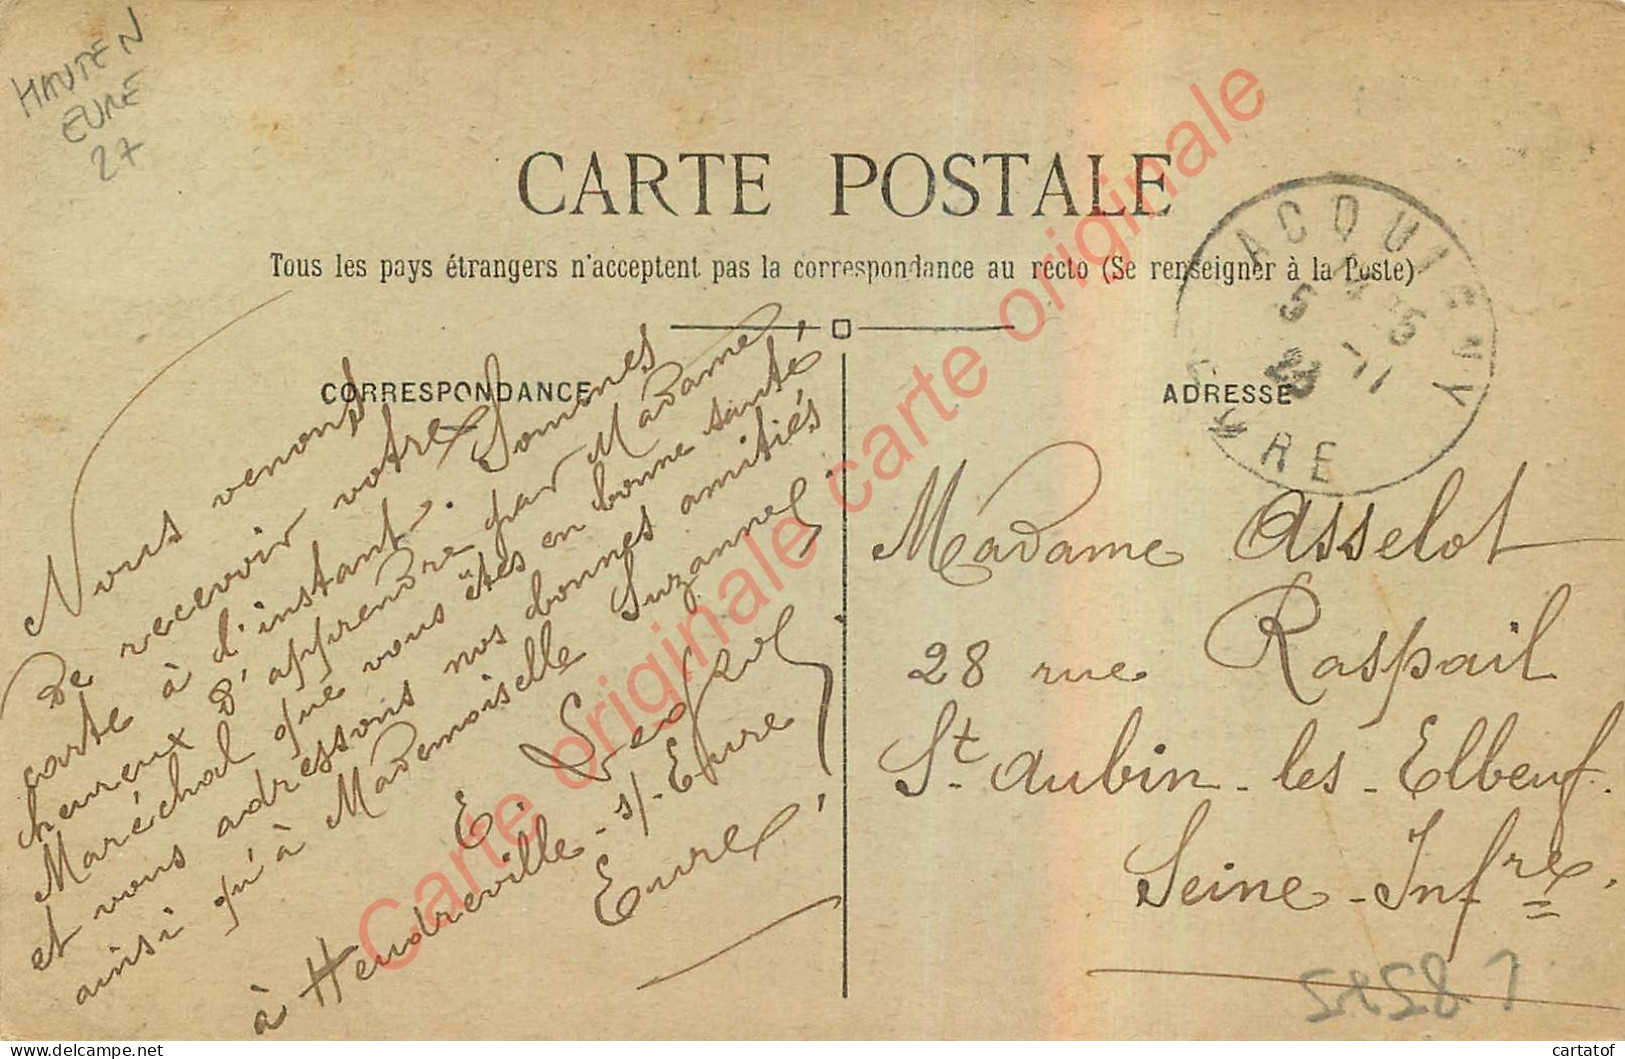 HAUTE N
EURE
27
CARTE POSTALE
Tous les pays étrangers n'acceptent pas la correspondance au recto (Se renseigner à la Poste)
CORRESPONDANCE
ADRESSE
ACQUIGNY
EURE
5
23
11
Nous venons
de recevoir votre
carte à l'instant. Sommes
heureux d'apprendre par Madame
Maréchal que vous êtes en bonne santé,
et vous adressons nos bonnes amitiés
ainsi qu'à Mademoiselle Suzanne.
E.
à Heudreville-s/-Eure
Eure
Madame Asselot
28 rue Raspail
St. Aubin-les-Elbeuf.
Seine-Infre.
Carte originale carte originale carte originale
cartatof